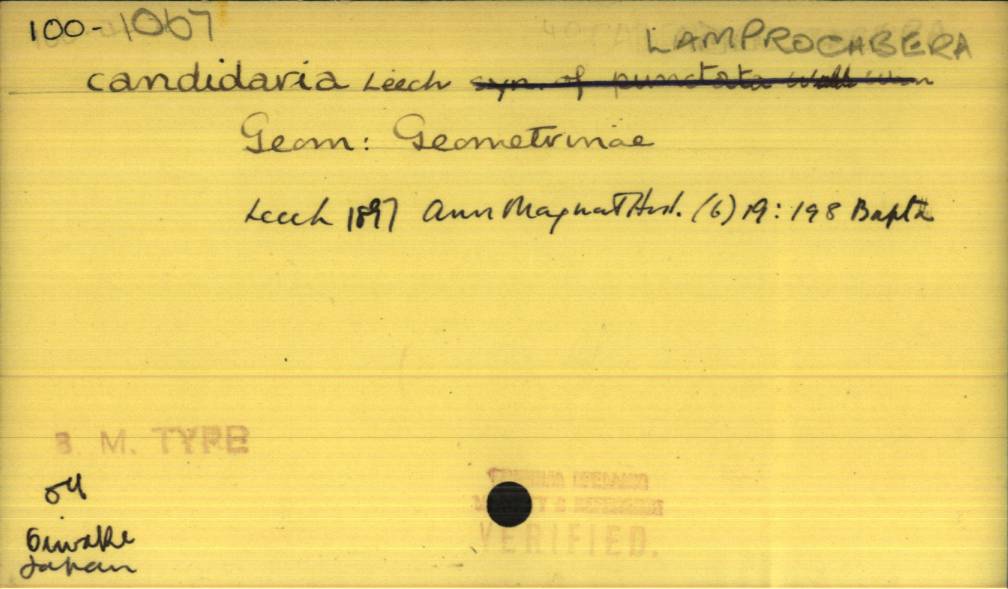 100-1067
LAMPROCABERA
candidaria Leech syn. of punctata
Geom: Geometrinae
Leech 1897 Ann Mag nat Hist. (6) 19: 198 Bapta
B. M. TYPE
Oiwake
Japan
VERIFIED.